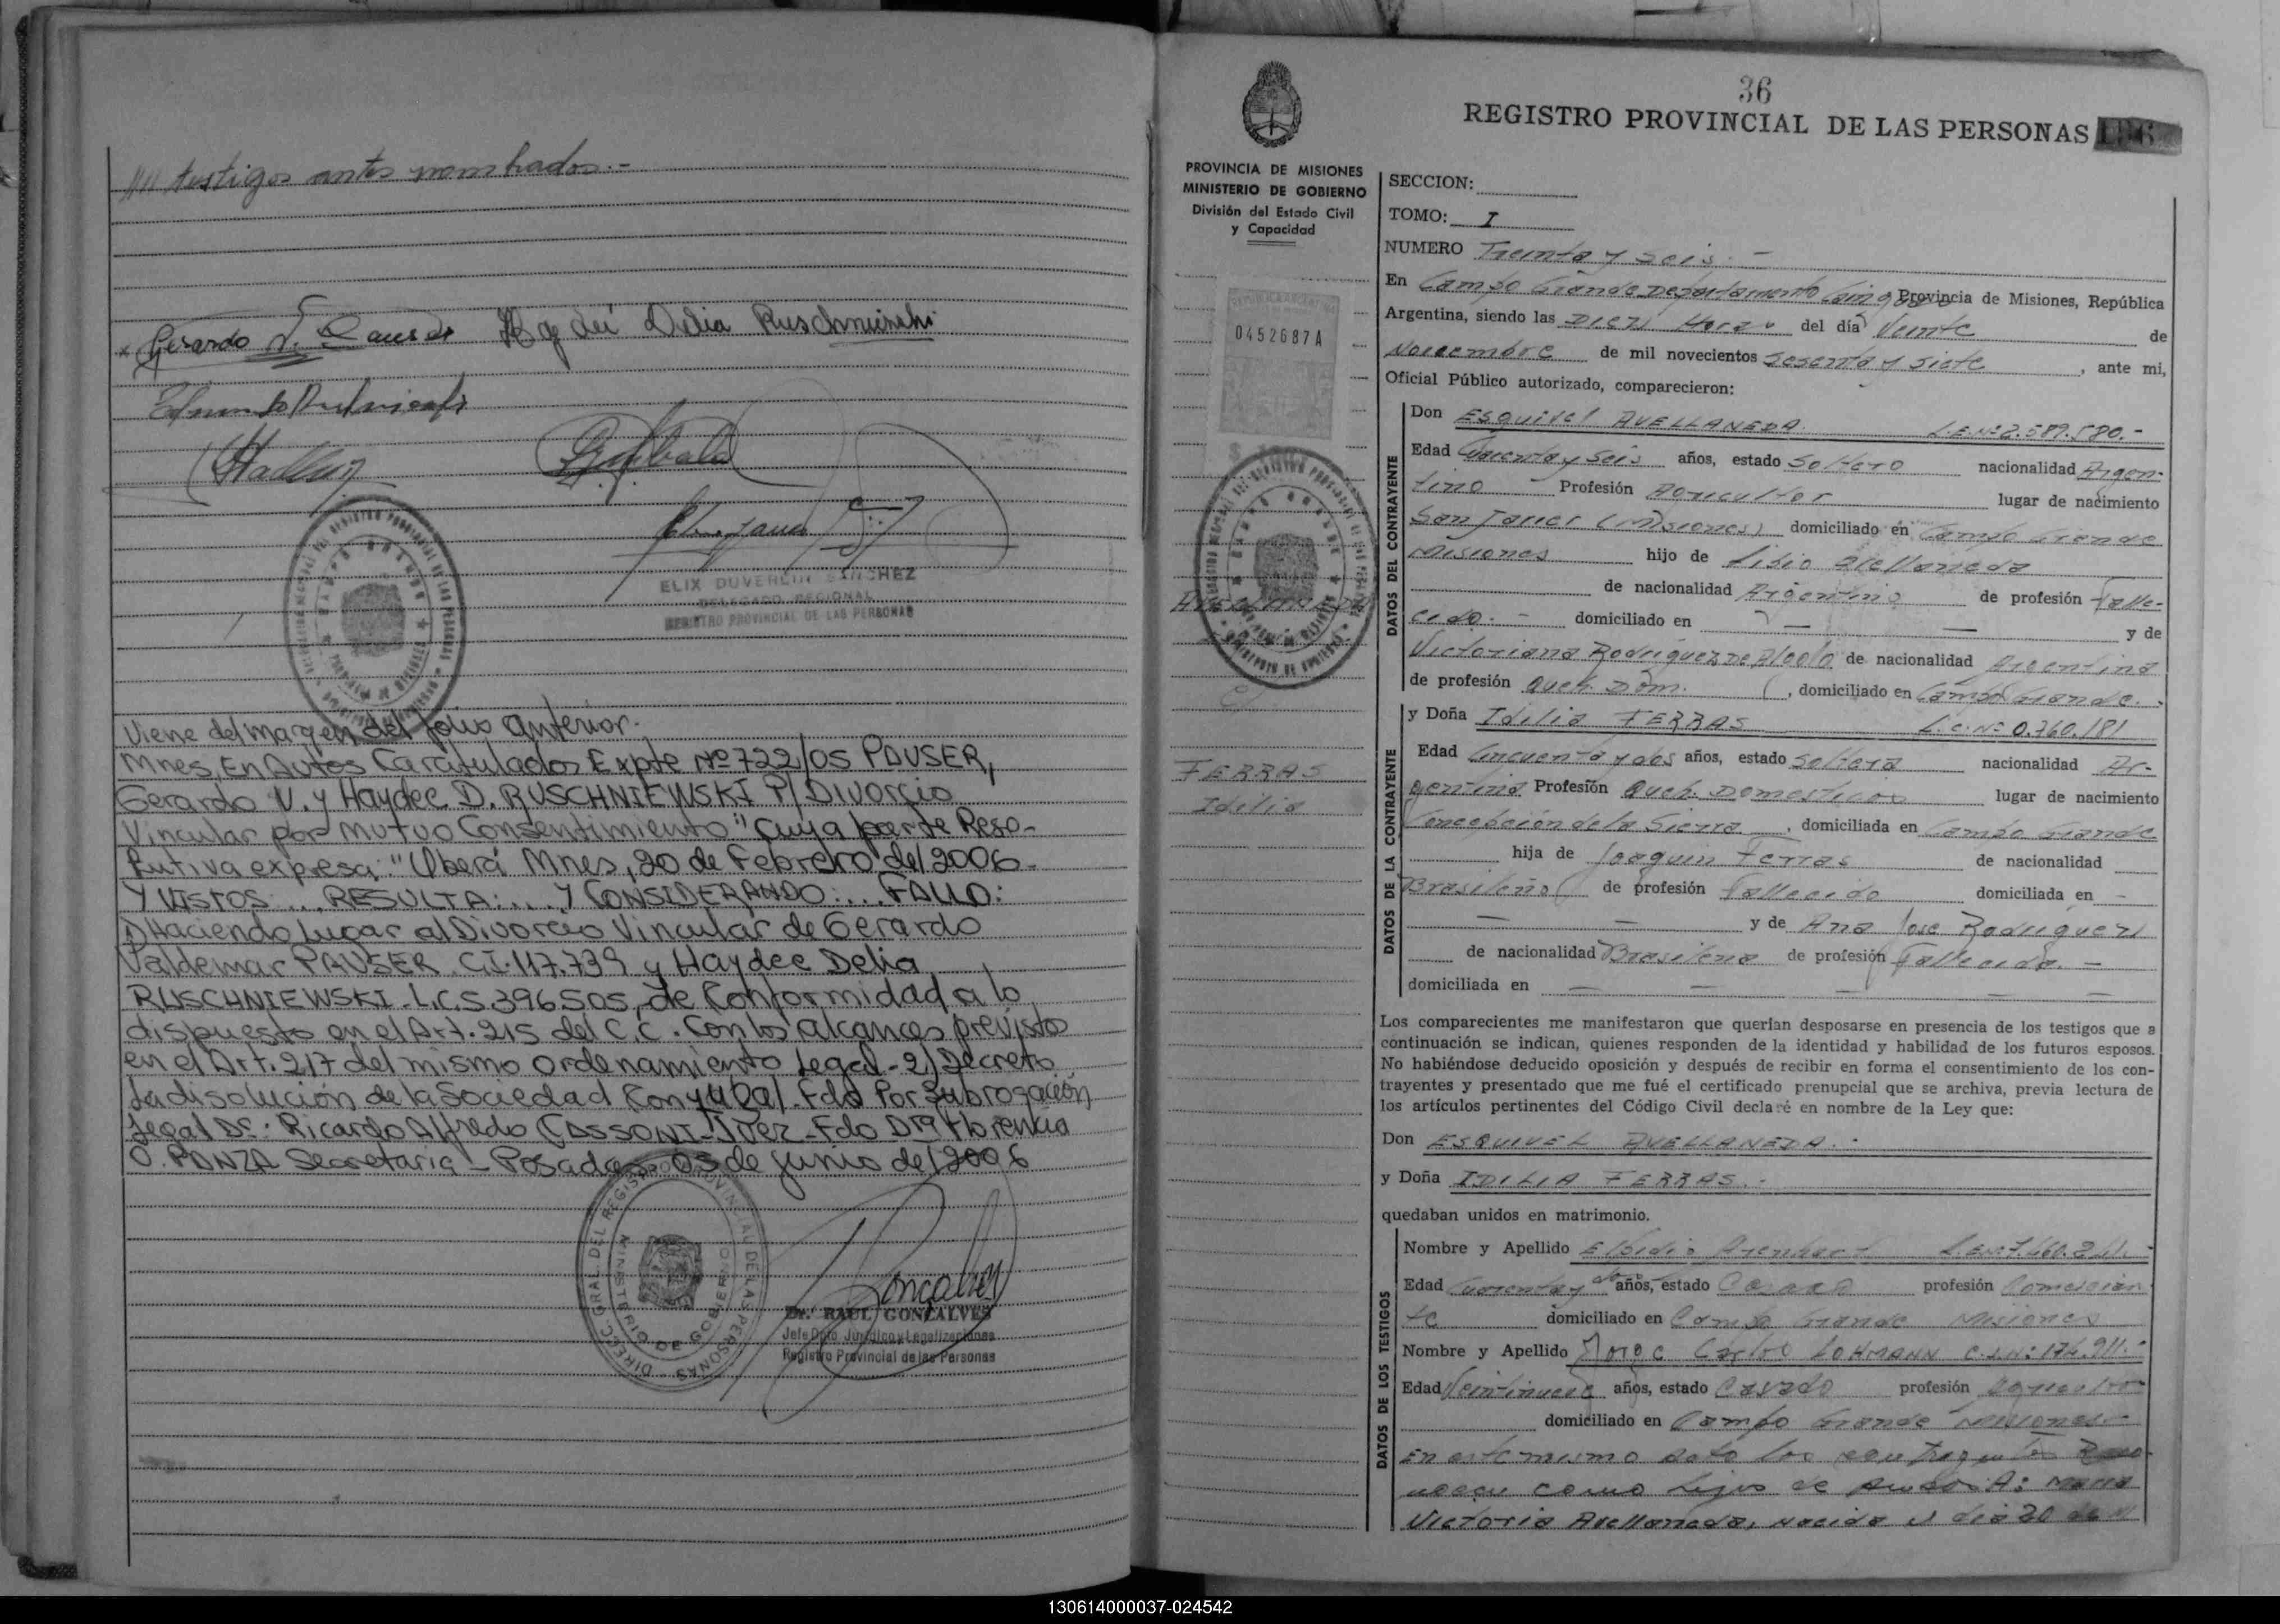 //// testigos antes nombrados.-
Gerardo V. Pauser Haydeé Delia Ruschniewski
ELIX DUVERLIN SANCHEZ
DELEGADO REGIONAL
REGISTRO PROVINCIAL DE LAS PERSONAS
Viene del margen del folio anterior.
Mnes, En Autos Caratulados Expte Nº 722/05 PAUSER,
Gerardo V. y Haydee D. RUSCHNIEWSKI P/ Divorcio
Vincular por mutuo Consentimiento" Cuya parte Reso-
lutiva expresa: "Oberá Mnes, 20 de Febrero del 2006-
Y VISTOS ... RESULTA: ... Y CONSIDERANDO: ... FALLO:
1) Haciendo lugar al Divorcio Vincular de Gerardo
Valdemar PAUSER C.I. 117.739 y Haydee Delia
RUSCHNIEWSKI - L.C. 5.396.505, de Conformidad a lo
dispuesto en el Art. 215 del C.C. Con los alcances previsto
en el Art. 217 del mismo Ordenamiento Legal - 2) Decreto
La disolución de la Sociedad Conyugal - Fdo Por Subrogación
Legal Dr. Ricardo Alfredo CASSONI - Juez - Fdo Dra Florencia
O. PONZA Secretaria - Posadas 05 de Junio del 2006
DIREC. GRAL. DEL REGISTRO PROVINCIAL DE LAS PERSONAS
MINISTERIO DE GOBIERNO
Dr. RAUL GONCALVES
Jefe Dpto. Jurídico y Legalizaciones
Registro Provincial de las Personas
36
REGISTRO PROVINCIAL DE LAS PERSONAS
PROVINCIA DE MISIONES
MINISTERIO DE GOBIERNO
División del Estado Civil
y Capacidad
0452687A
AVELLANEDA
FERRAS
Idilia
SECCION:
TOMO: I
NUMERO Treinta y seis. -
En Campo Grande Departamento Provincia de Misiones, República
Argentina, siendo las Diez Horas del día Veinte de
Noviembre de mil novecientos sesenta y siete, ante mi,
Oficial Público autorizado, comparecieron:
DATOS DEL CONTRAYENTE
Don Esquivel AVELLANEDA L.E.Nº 2.589.580.-
Edad Cuarenta y Seis años, estado Soltero nacionalidad Argen-
tino Profesión Agricultor lugar de nacimiento
San Javier (Misiones) domiciliado en Campo Grande
Misiones hijo de Avellaneda
de nacionalidad Argentino de profesión Falle-
cido. - domiciliado en — — y de
Victoriana Rodriguez de nacionalidad Argentina
de profesión Queh. Dom., domiciliado en Campo Grande.
DATOS DE LA CONTRAYENTE
y Doña Idilia FERRAS L.C.Nº 0.760.181
Edad Cincuenta y dos años, estado soltera nacionalidad Ar-
gentina Profesión Queh. Domesticos lugar de nacimiento
Concepción de la Sierra, domiciliada en Campo Grande
hija de Joaquin Ferras de nacionalidad
Brasileño de profesión Fallecido domiciliada en -
— — y de Ana Jose Rodriguez
de nacionalidad Brasileña de profesión Fallecida. -
domiciliada en — — — — —
Los comparecientes me manifestaron que querían desposarse en presencia de los testigos que a
continuación se indican, quienes responden de la identidad y habilidad de los futuros esposos.
No habiéndose deducido oposición y después de recibir en forma el consentimiento de los con-
trayentes y presentado que me fué el certificado prenupcial que se archiva, previa lectura de
los artículos pertinentes del Código Civil declaré en nombre de la Ley que:
Don ESQUIVEL AVELLANEDA. -
y Doña IDILIA FERRAS. -
quedaban unidos en matrimonio.
DATOS DE LOS TESTIGOS
Nombre y Apellido Elpidio
Edad Cuarenta y años, estado Casado profesión Comercian
te domiciliado en Campo Grande Misiones
Nombre y Apellido Jorge Carlos LOHMANN C.I.Nº: 174.911.-
Edad Veintinueve años, estado Casado profesión Agricultor
domiciliado en Campo Grande Misiones-
En este mismo acto los contrayentes Reco-
nocen como hijos de ambos A: Maria
Victoria Avellaneda, nacida el dia 20 de
130614000037-024542